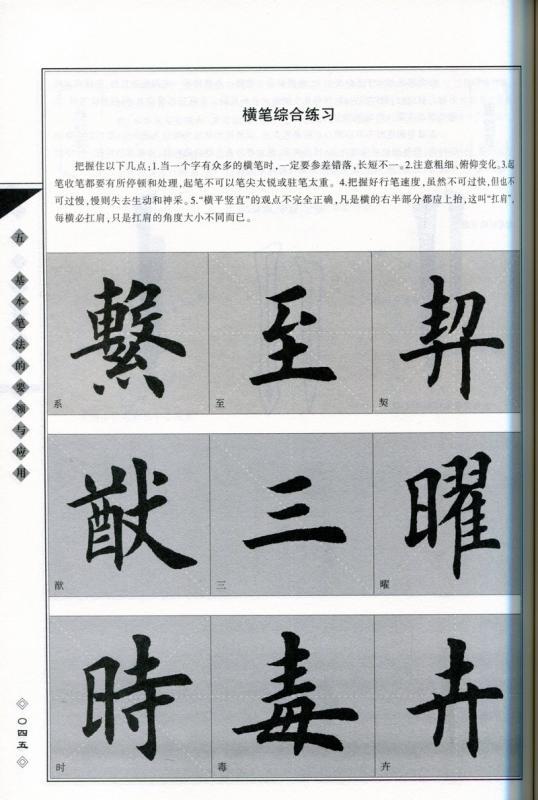 横笔综合练习
把握住以下几点:1.当一个字有众多的横笔时,一定要参差错落,长短不一。2.注意粗细、俯仰变化。3.起
笔收笔都要有所停顿和处理,起笔不可以笔尖太锐或驻笔太重。4.把握好行笔速度,虽然不可过快,但也不
可过慢,慢则失去生动和神采。5.“横平竖直”的观点不完全正确,凡是横的右半部分都应上抬,这叫“扛肩”,
每横必扛肩,只是扛肩的角度大小不同而已。
五 基本笔法的要领与应用
繫 至 契
系 至 契
猷 三 曜
猷 三 曜
時 毒 卉
时 毒 卉
〇四五